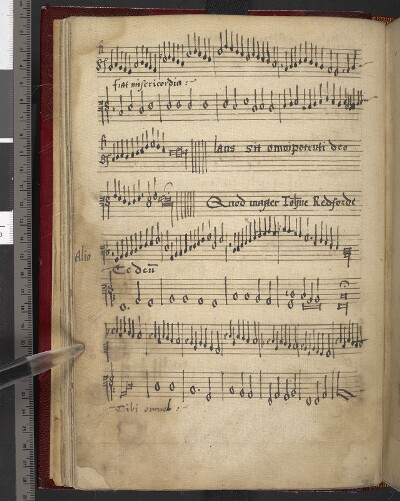 fiat misericordia :-
laus sit omnipotenti deo
Quod master Johne Redforde
Alio
Eodem
Tibi omnes :-